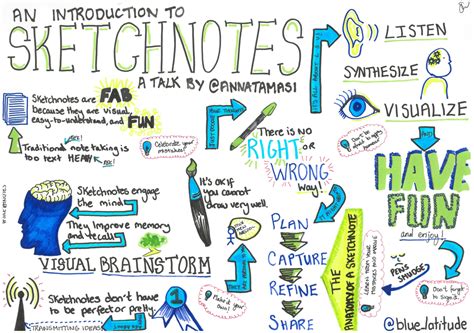 AN INTRODUCTION TO
SKETCHNOTES
A TALK BY @ANNATAMASI
Sketchnotes are FAB
because they are visual,
easy-to-understand, and FUN
Traditional note taking is
too text HEAVY
Celebrate your
mistakes!
There is no
RIGHT
or
WRONG
way!
LISTEN
SYNTHESIZE
VISUALIZE
AND
HAVE
FUN
and enjoy!
Sketchnotes engage
the mind
They improve memory
and recall
VISUAL BRAINSTORM
IT'S OK IF
you CANNOT
draw very well
Sketchnotes don't have
to be perfect or pretty
1
TRANSMITTING IDEAS
Make it your
own!
PLAN
CAPTURE
REFINE
SHARE
THE
ANATOMY OF A SKETCHNOTE
PENS
SMUDGE
Don't forget
to sign it!
@blue_latitude